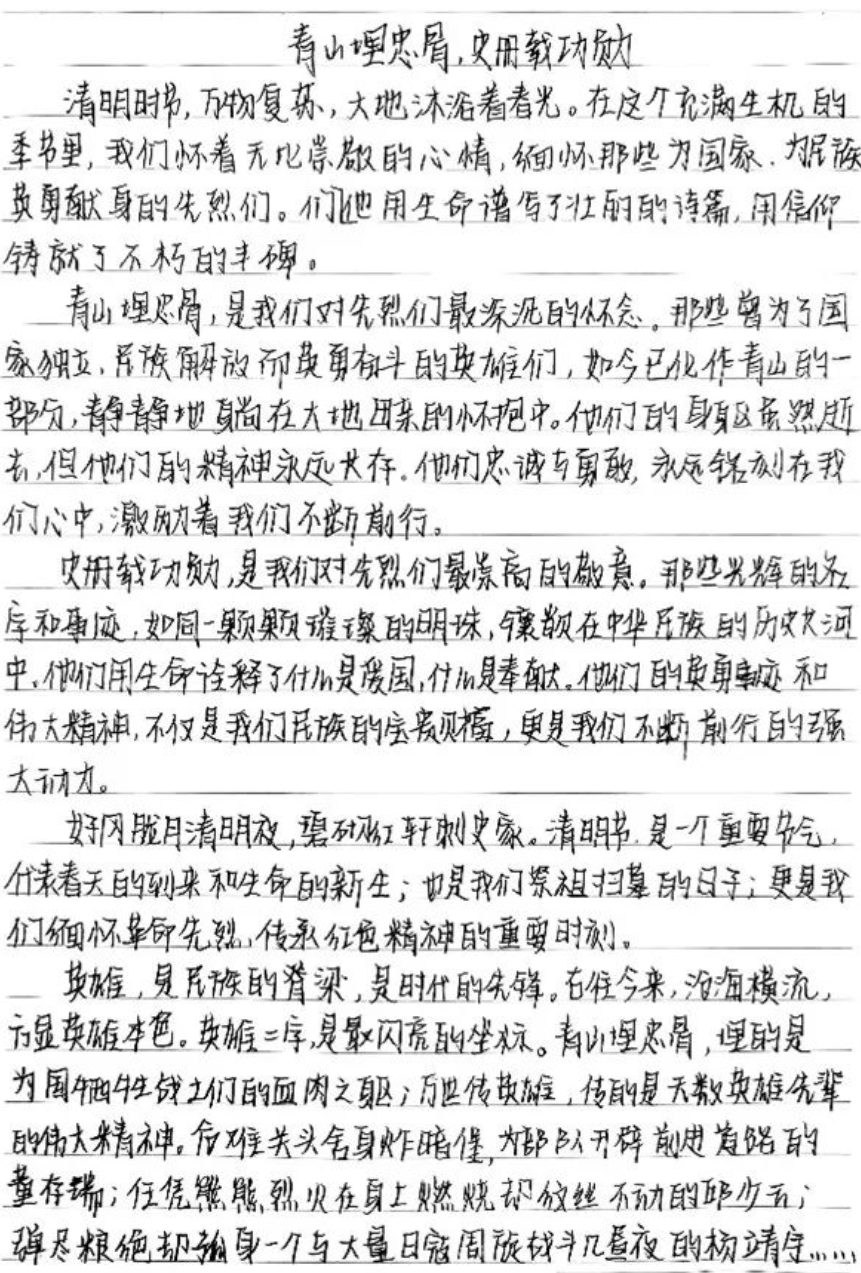 青山埋忠骨,史册载功勋
清明时节,万物复苏,大地沐浴着春光。在这个充满生机的
季节里,我们怀着无比崇敬的心情,缅怀那些为国家、为民族
英勇献身的先烈们。们他用生命谱写了壮丽的诗篇,用信仰
铸就了不朽的丰碑。
青山埋忠骨,是我们对先烈们最深沉的怀念。那些曾为了国
家独立、民族解放而英勇奋斗的英雄们,如今已化作青山的一
部分,静静地躺在大地母亲的怀抱中。他们的身躯虽然逝
去,但他们的精神永远长存。他们忠诚与勇敢,永远铭刻在我
们心中,激励着我们不断前行。
史册载功勋,是我们对先烈们最崇高的敬意。那些光辉的名
字和事迹,如同一颗颗璀璨的明珠,镶嵌在中华民族的历史长河
中。他们用生命诠释了什么是爱国,什么是奉献。他们的英勇事迹和
伟大精神,不仅是我们民族的宝贵财富,更是我们不断前行的强
大动力。
好风胧月清明夜,碧砌红轩刺史家。清明节,是一个重要节气,
代表春天的到来和生命的新生;也是我们祭祖扫墓的日子;更是我
们缅怀革命先烈,传承红色精神的重要时刻。
英雄,是民族的脊梁,是时代的先锋。古往今来,沧海横流,
方显英雄本色。英雄二字,是最闪亮的坐标。青山埋忠骨,埋的是
为国牺牲战士们的血肉之躯;万世传英雄,传的是无数英雄先辈
的伟大精神。危难关头舍身炸暗堡,为部队开辟前进道路的
董存瑞;任凭熊熊烈火在身上燃烧却纹丝不动的邱少云;
弹尽粮绝却孤身一个与大量日寇周旋战斗几昼夜的杨靖宇……